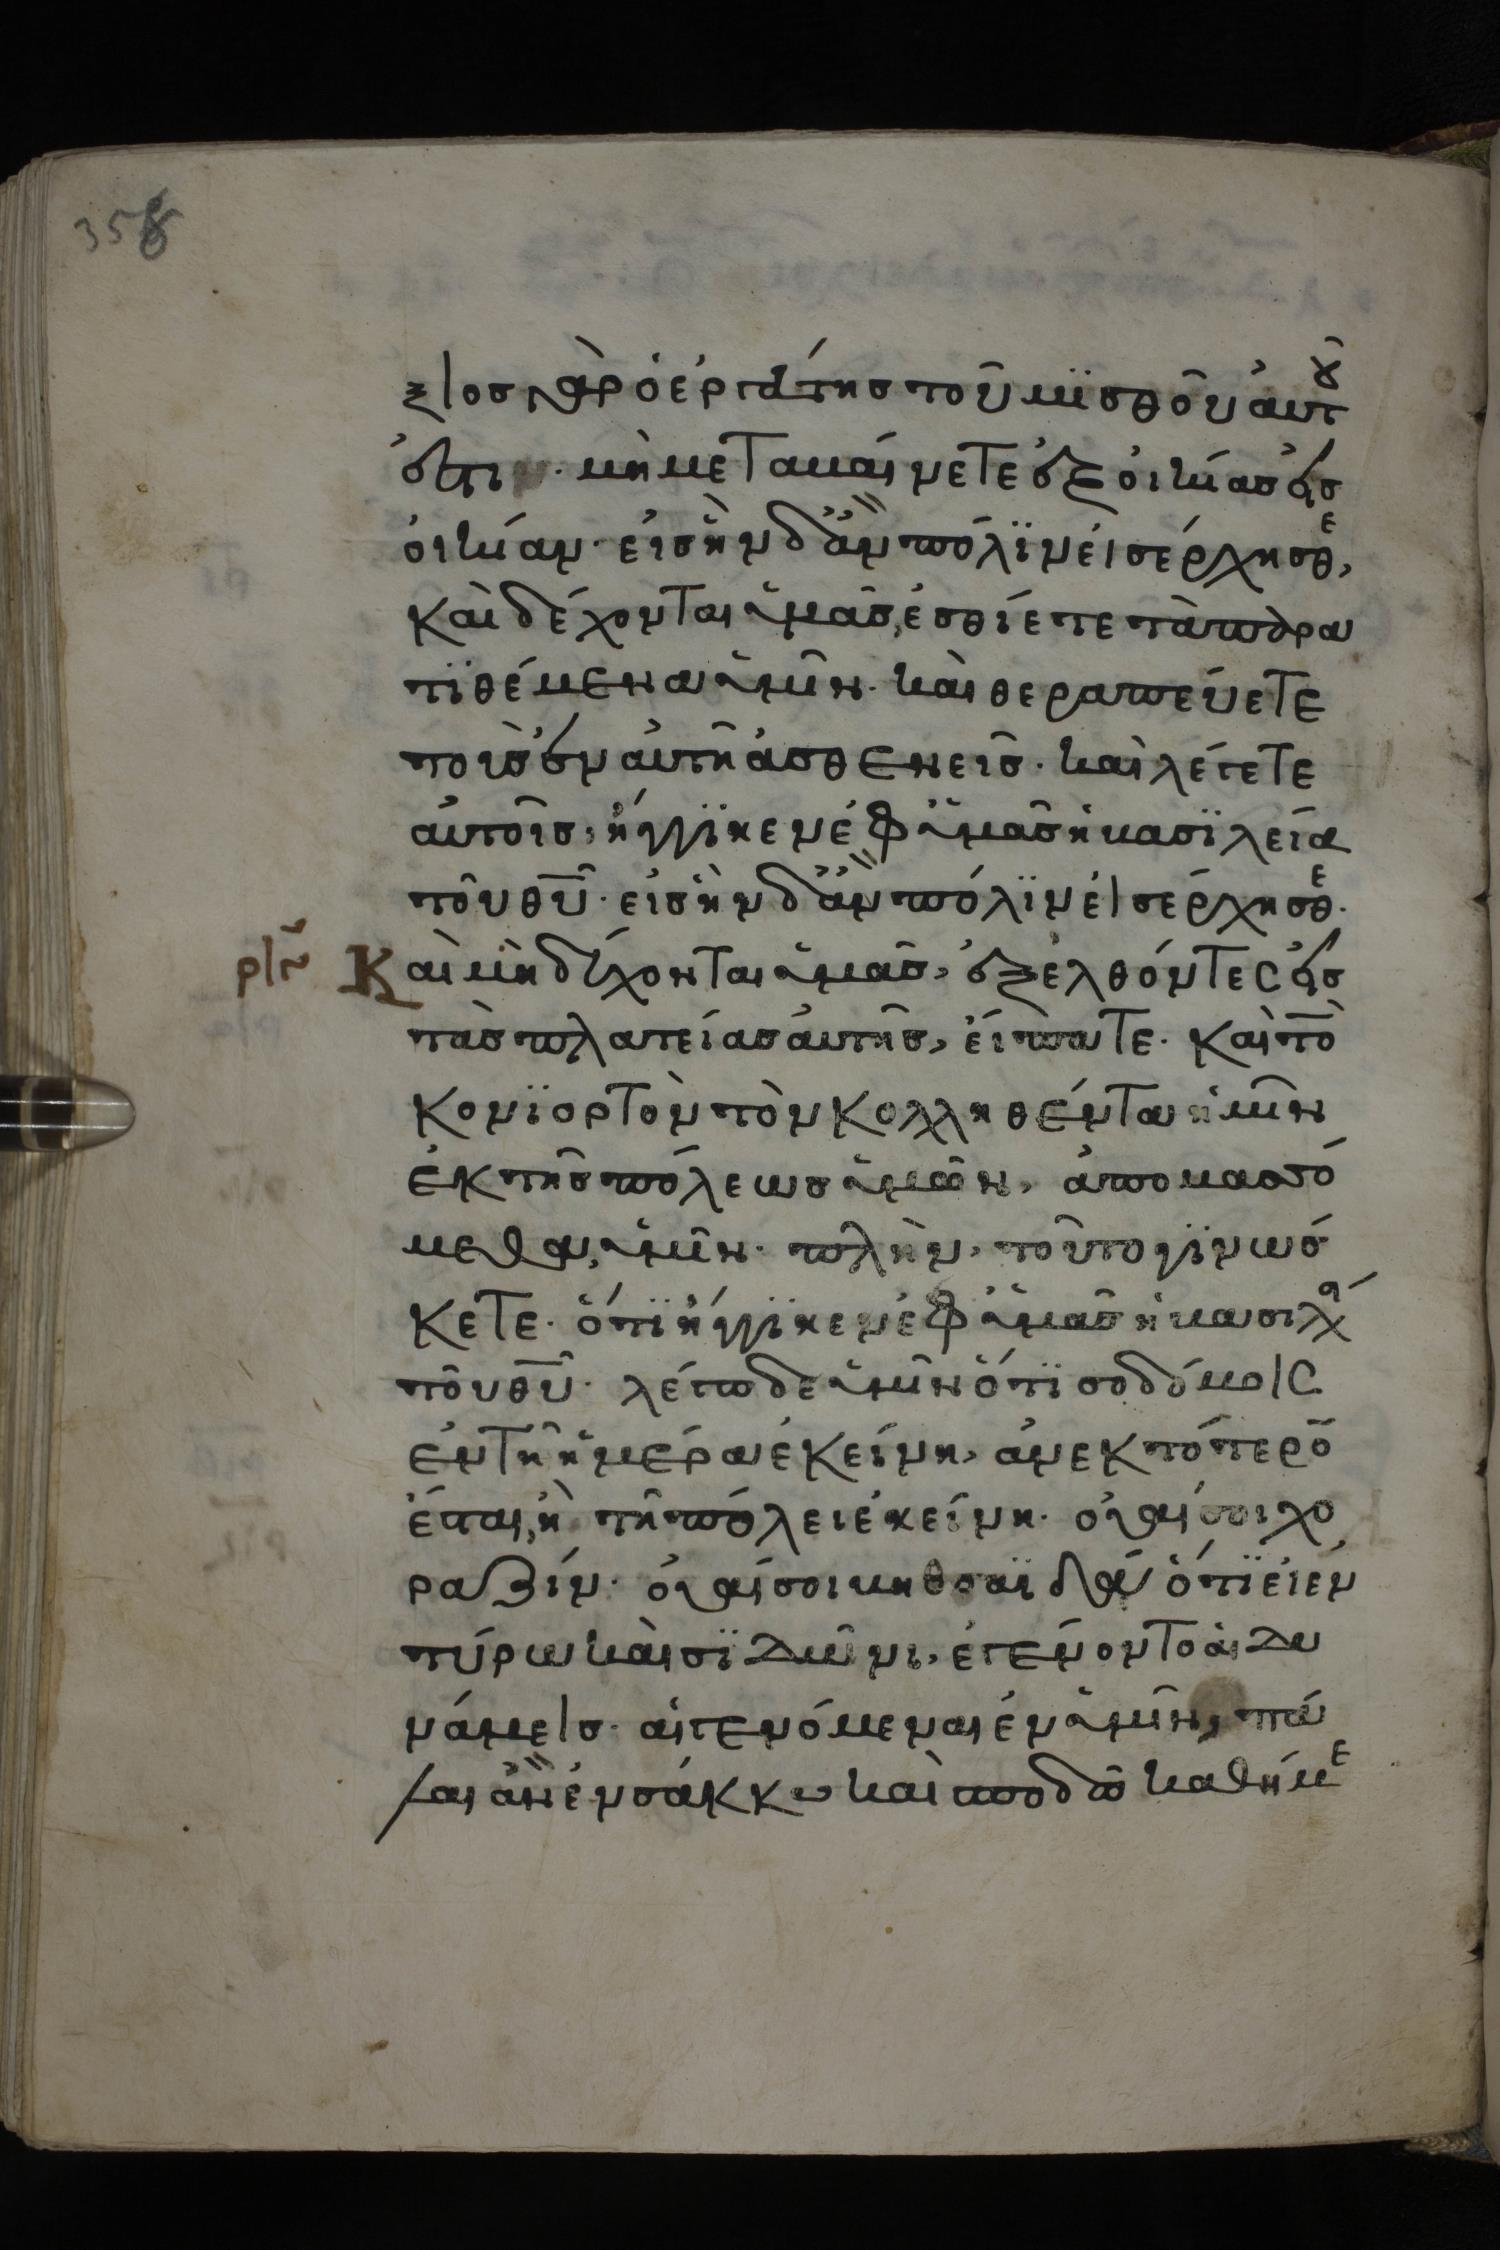 358
ξιος γὰρ ὁ ἐργάτης τοῦ μϊσθοῦ αὐτοῦ
ἐστι· μὴ μεταβαίνετε ἐξ οἰκίας εἰς
οἰκίαν· εἰς ἣν δ̓ ἂν πόλϊν εἰσέρχησθε,
καὶ δέχονται ὑμᾶς, ἐσθίετε τὰ παρα
τϊθέμενα ὑμῖν· καὶ θεραπεύετε
τοὺς ἐν αὐτῆ ἀσθενεῖς· καὶ λέγετε
αὐτοῖς, ἤγγϊκεν ἐφ ὑμᾶς ἡ βασϊλεία
τοῦ θῦ· εἰς ἣν δ̓ ἂν πόλϊν εἰσέρχησθε·
ριγ Καὶ μὴ δέχονται ὑμᾶς, ἐξελθόντες εἰς
τὰς πλατείας αὐτῆς, εἴπατε· καὶ τὸ
κονϊορτὸν τὸν κολληθέντα ἡμῖν
ἐκ τῆς πόλεως ὑμῶν, ἀπομασσό
μεθα, ὑμῖν· πλὴν, τοῦτο γϊνώσ
κετε· ὅτϊ ἤγγϊκεν ἐφ ὑμᾶς ἡ βασιλεία
τοῦ θῦ· λέγω δὲ ὑμῖν ὅτϊ σοδόμοις
ἐν τῆ ἡμέρα ἐκείνη, ἀνεκτότερον
ἔσται, ἢ τῆ πόλει ἐκείνη· οὐαί σοι χο
ραζίν· οὐαί σοι βηθσαϊδά· ὅτϊ εἰ ἐν
τύρω καὶ σϊδῶνι, ἐγένοντο αἱ δυ
νάμεις· αἱ γενόμεναι ἐν ὑμῖν, πά
λαι ἂν ἐν σάκκω καὶ σποδῶ καθήμε